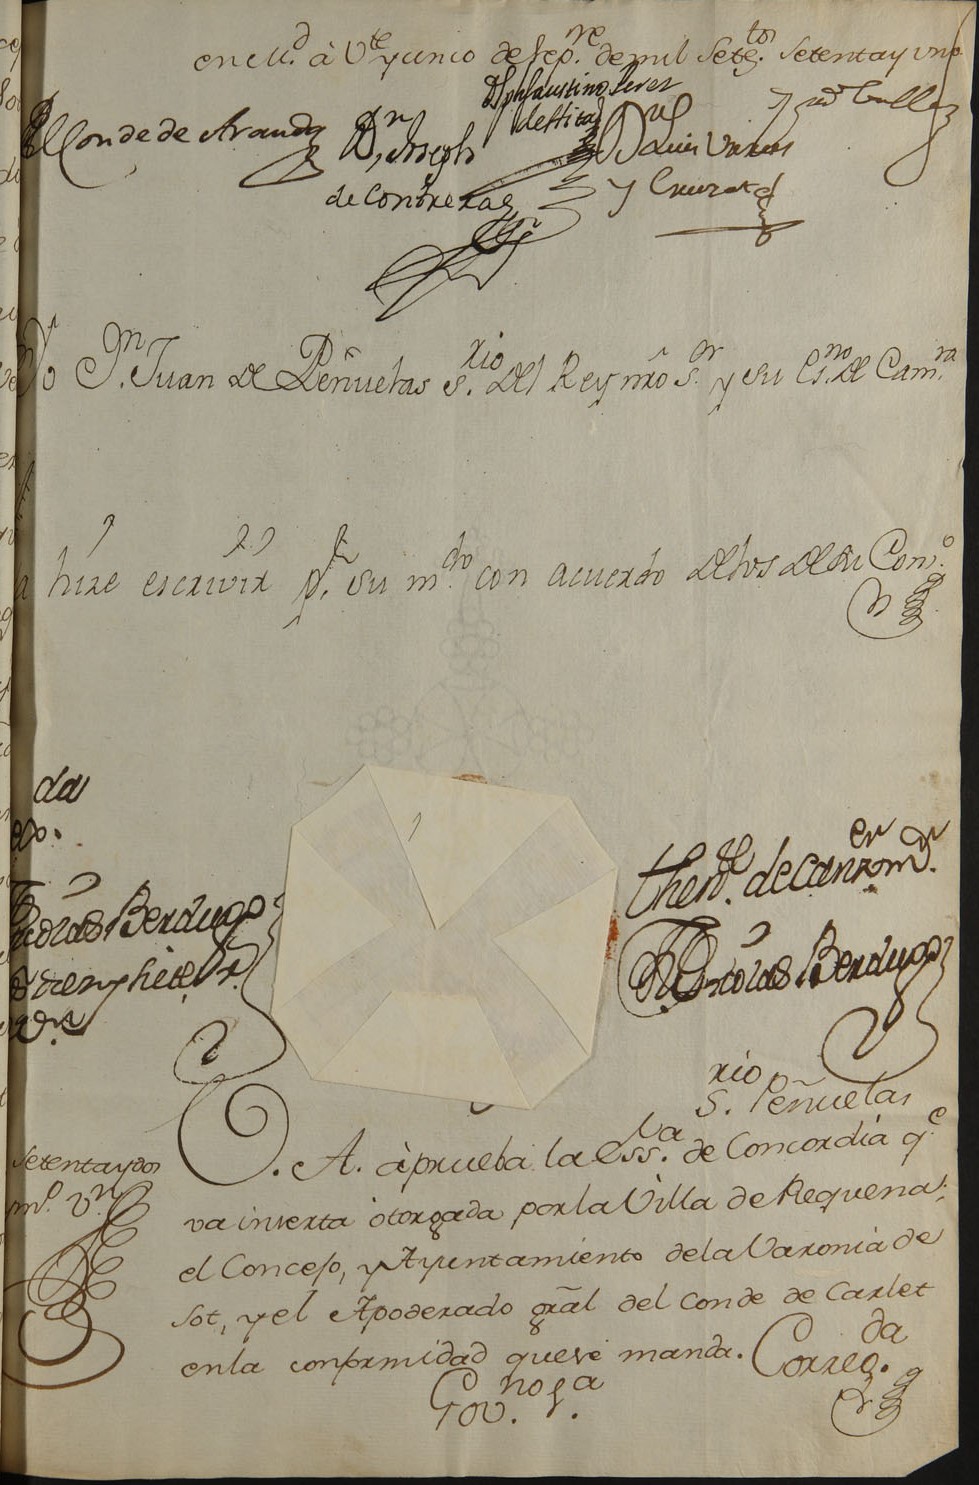 en M.d à Vte y cinco de Sepre. de mil Setetos. Setenta y uno
El Conde de Aranda
Dn Joseph
de Contreras
Dn Luis Urries
y Cruzat
Yo Dn. Juan de Peñuelas Srio. del Rey nro Sr. y su Esno. de Camra
hize escrivir pr. su mdo con acuerdo de los de su Cono.
da
Nicolas Berdugo
thente. de Canzer mr.
Nicolas Berdugo
Srio. Peñuelas
Setenta y dos
ms. vn
V. A. àprueba la Essra. de Concordia qe
va inserta otorgada por la Villa de Requena;
el Concejo, y Ayuntamiento de la Varonia de
Sot, y el Apoderado gral del Conde de Carlet
en la conformidad que se manda.
Correg.da
Govno